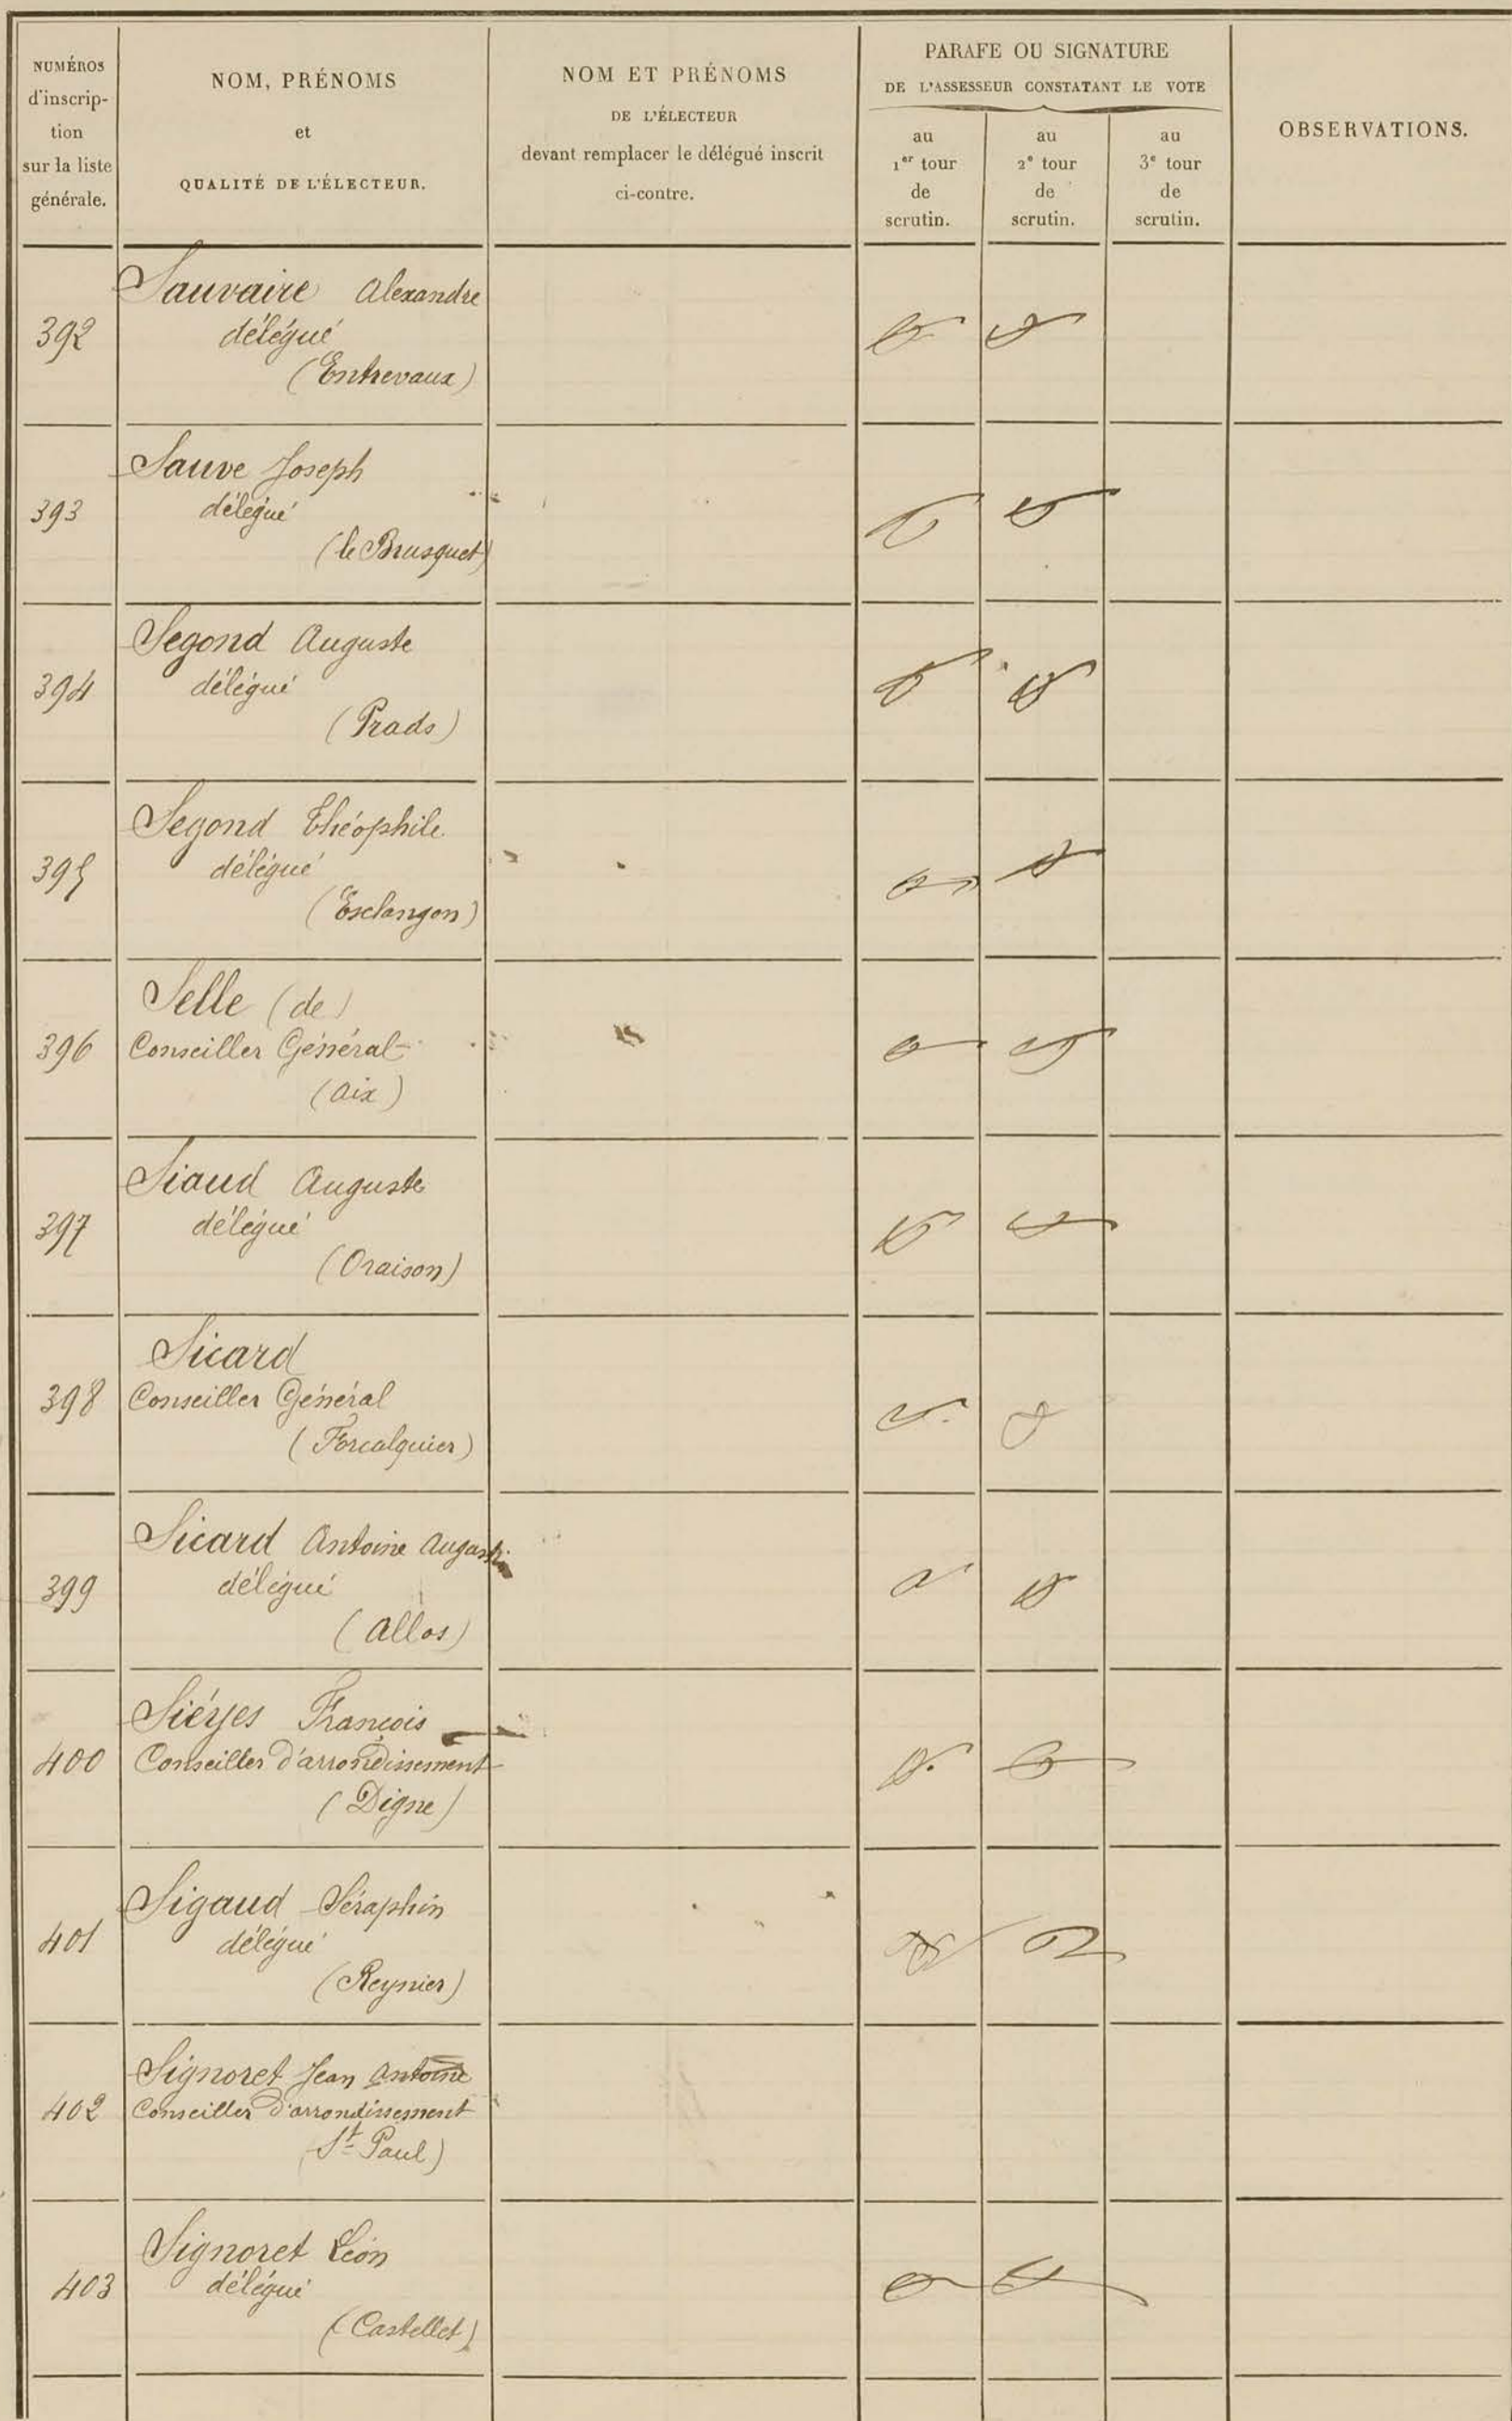 NUMÉROS
d'inscrip-
tion
sur la liste
générale.
NOM, PRÉNOMS
et
QUALITÉ DE L'ÉLECTEUR.
NOM ET PRÉNOMS
DE L'ÉLECTEUR
devant remplacer le délégué inscrit
ci-contre.
PARAFE OU SIGNATURE
DE L'ASSESSEUR CONSTATANT LE VOTE
au
1er tour
de
scrutin.
au
2e tour
de
scrutin.
au
3e tour
de
scrutin.
OBSERVATIONS.
Sauvaire Alexandre
392 délégué
(Entrevaux)
Sauve Joseph
393 délégué
(le Brusquet)
Segond Auguste
394 délégué
(Prads)
Segond Théophile
395 délégué
(Esclangon)
Selle (de)
396 Conseiller Général
(Aix)
Siaud Auguste
397 délégué
(Oraison)
Sicard
398 Conseiller Général
(Forcalquier)
Sicard Antoine Augustin
399 délégué
(Allos)
Siéyes François
400 Conseiller d'arrondissement
(Digne)
Sigaud Séraphin
401 délégué
(Reynier)
Signoret Jean Antoine
402 Conseiller d'arrondissement
St Paul)
Signoret Léon
403 délégué
(Castellet)